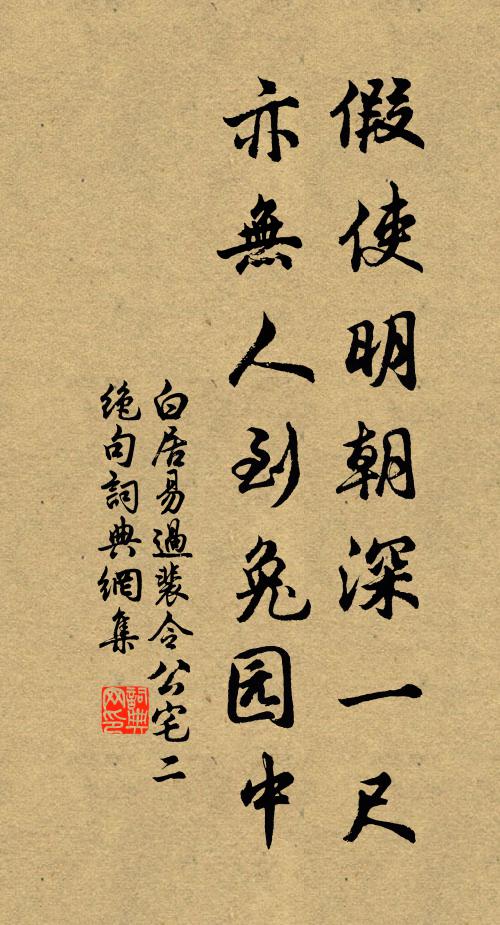 假使明朝深一尺
亦無人到兔园中
白居易過裴令公宅二
絶句詞典網集
詞典网印